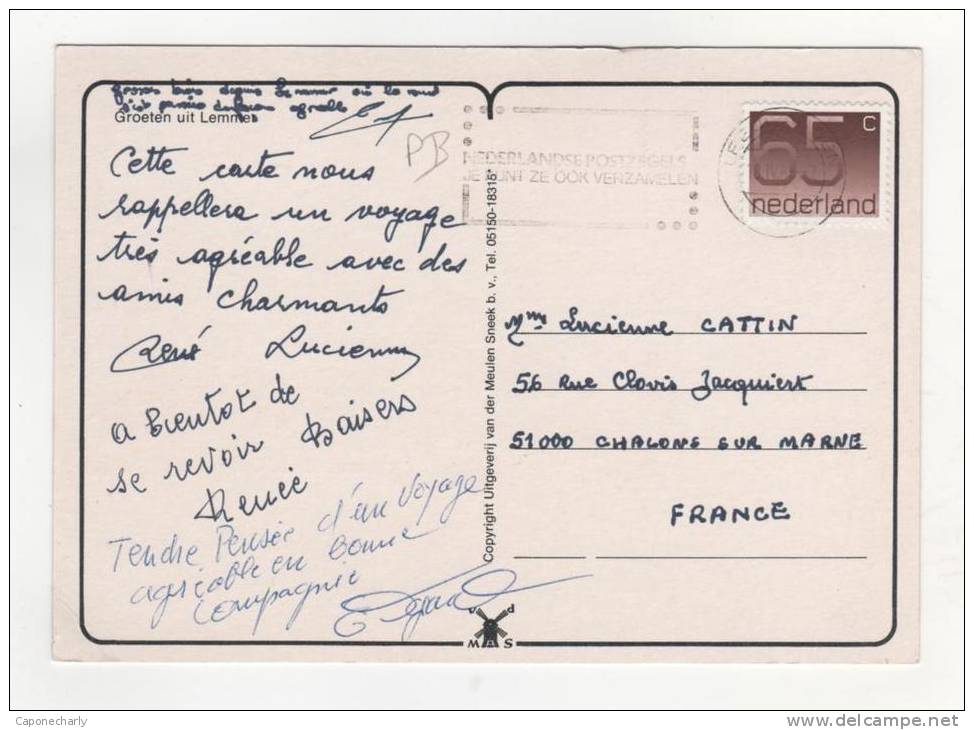 Groeten uit Lemmer
Cette carte nous
rappellera un voyage
très agréable avec des
amis charmants
René Lucienne
a bientot de
se revoir Baisers
Renée
Tendre Pensée d'un Voyage
agréable en Bonne
Compagnie
PB
NEDERLANDSE POSTZEGELS
JE KUNT ZE OOK VERZAMELEN
65 c
nederland
Copyright Uitgeverij van der Meulen Sneek b.v., Tel. 05150-18315*
Mme Lucienne CATTIN
56 Rue Clovis Jacquiert
51000 CHALONS SUR MARNE
FRANCE
v d
MAS
Caponecharly
www.delcampe.net